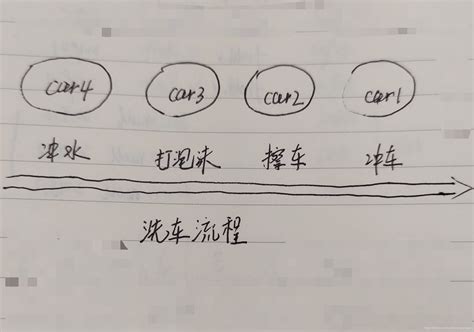 car4 car3 car2 car1
冲水 打泡沫 擦车 冲车
洗车流程